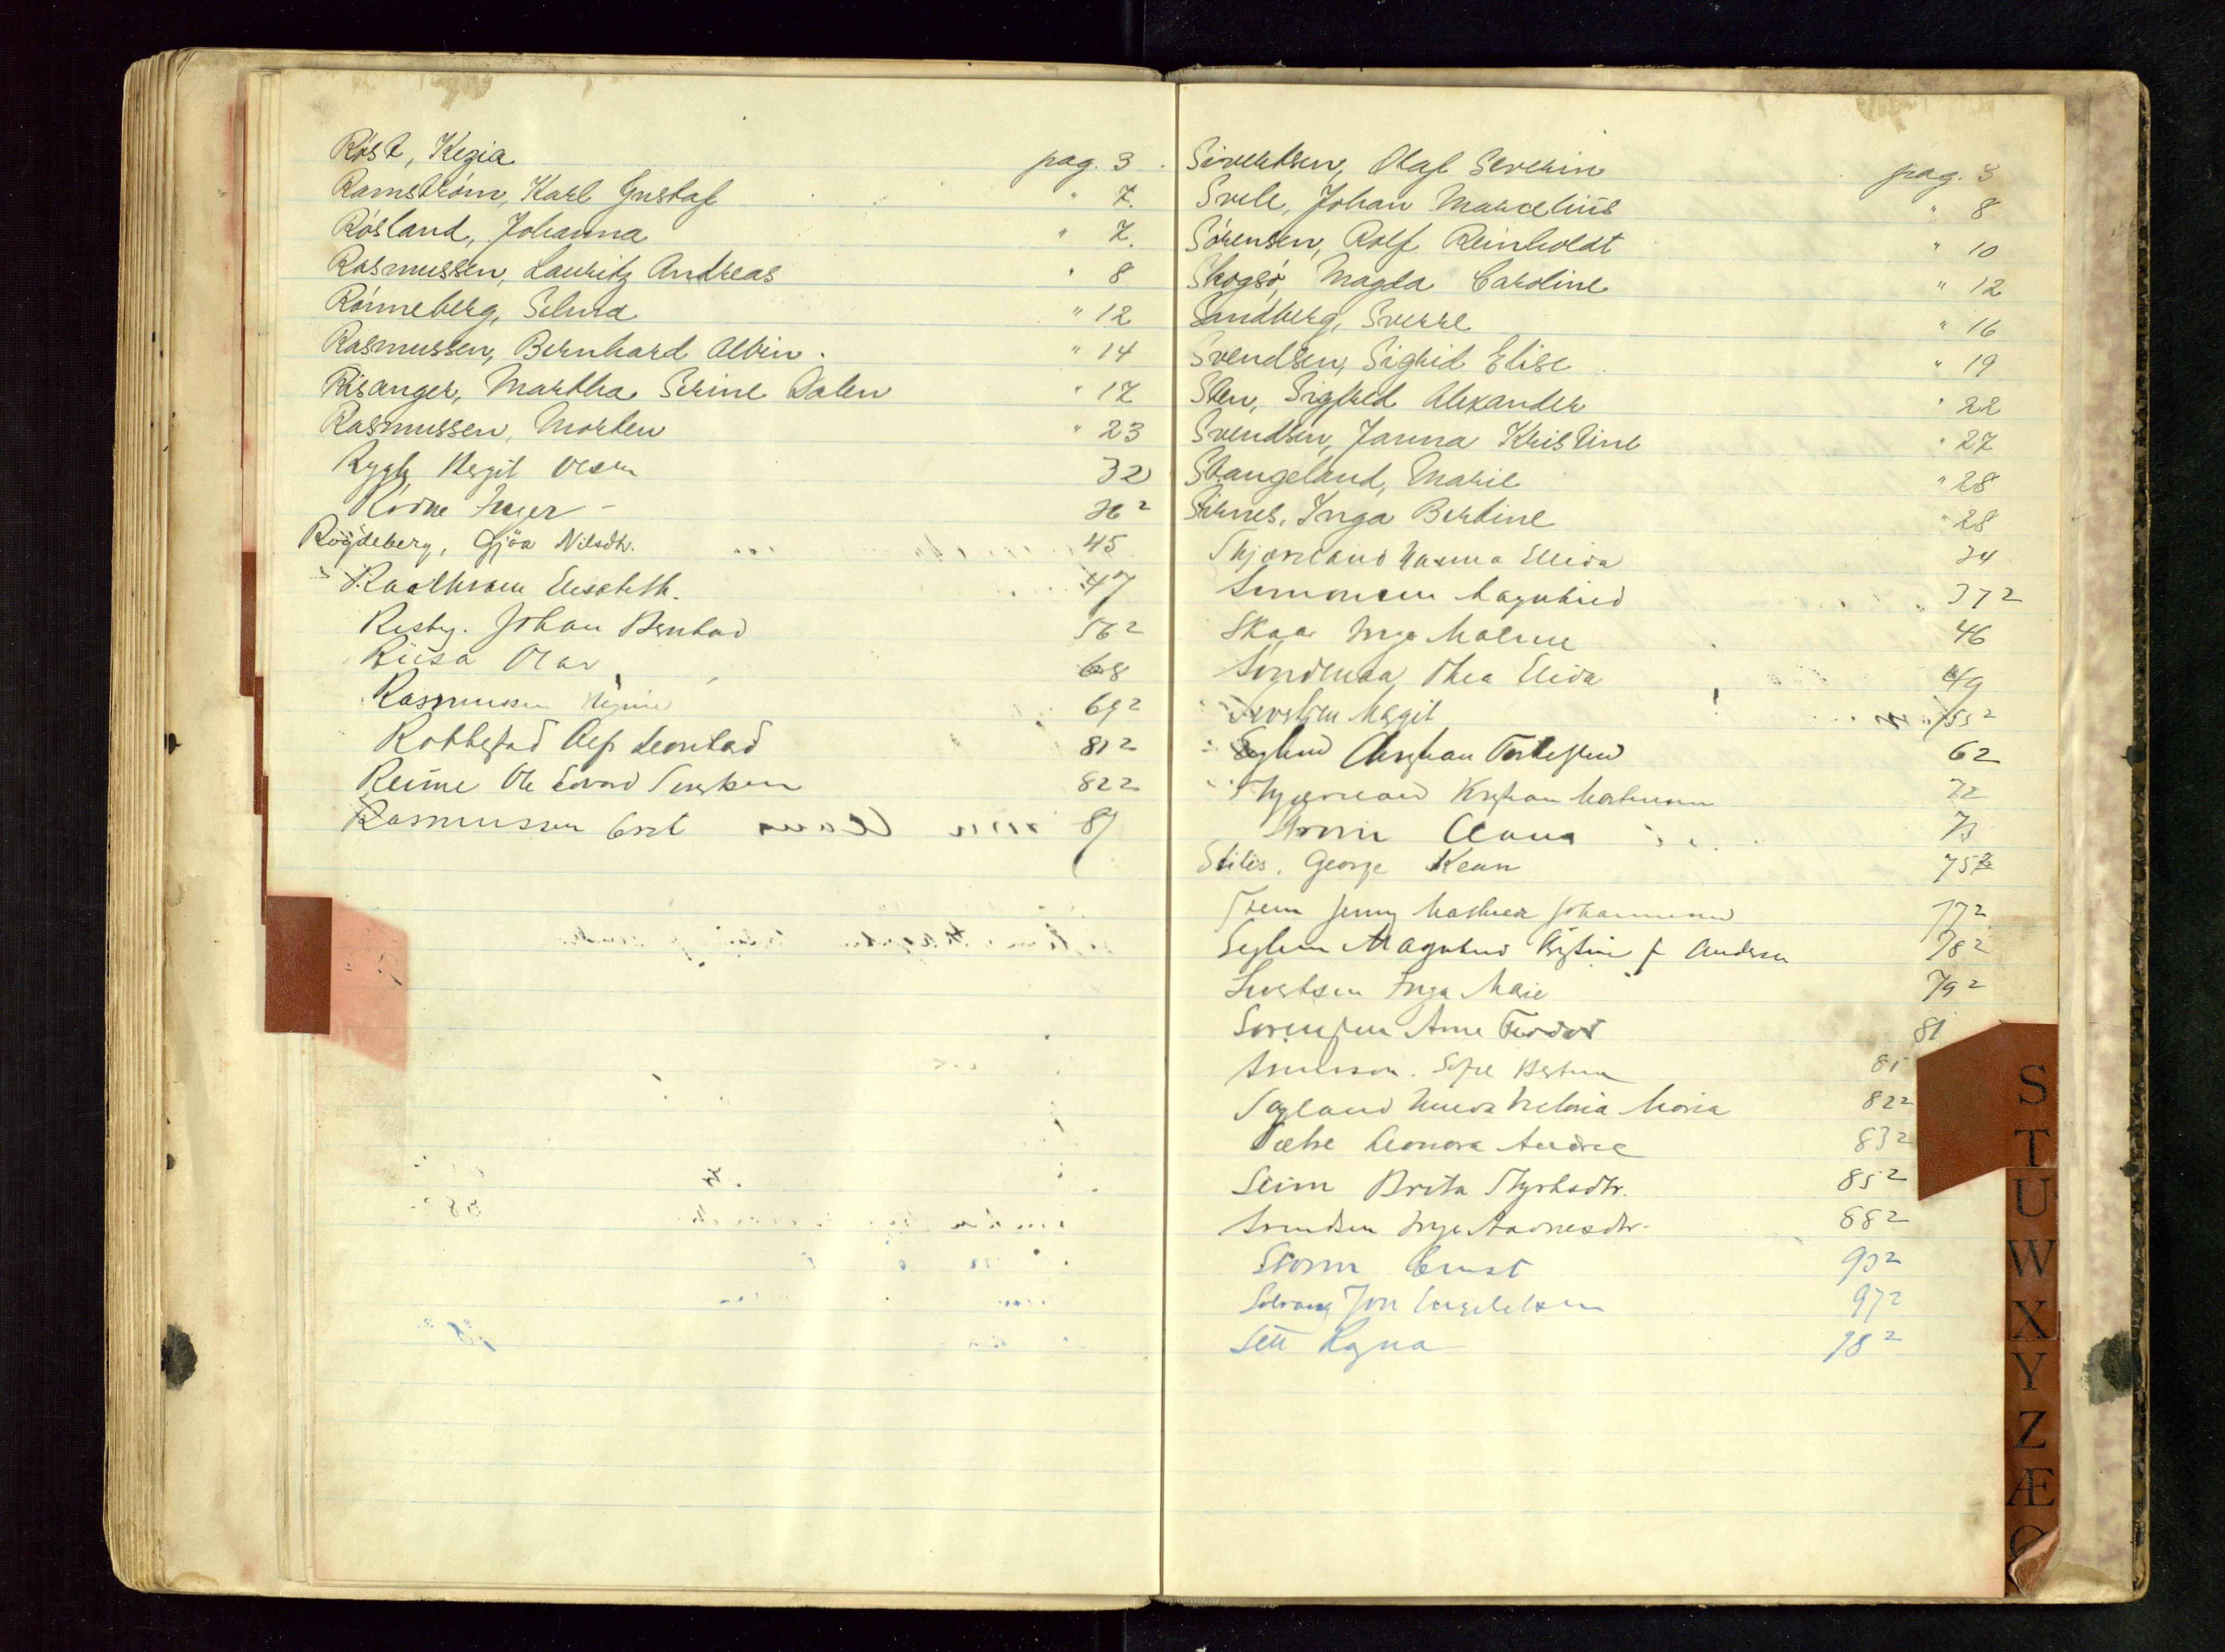 Röst, Kezia pag. 3
Ramström, Karl Gustaf " 7.
Rösland, Johanna " 7.
Rasmussen, Lauritz Andreas " 8
Rönneberg, Selma " 12
Rasmussen, Bernhard Albin. " 14
Risanger, Martha Serine Dalen " 17
Rasmussen, Morten " 23
Rygh Bergit Olsen 32
Rödne Inger
Röydeberg, Gjöa Nilsdtr. 45
Elisabeth. 47
Risby. Johan Berntad 56²
Riisa Olav 68
Rasmussen Regine 69²
Robbestad Alf Leonhard 81²
Reime Ole Edvard Sivertsen 82²
Rasmussen Gret 87
Sivertsen, Olaf Severin pag. 3
Svele, Johan Marcelius " 8
Sörensen, Rolf Reinholdt " 10
Skogsö, Magda Caroline " 12
Sandberg, Sverre " 16
Svendsen, Sigrid Elise " 19
Sten, Sigfred Alexander " 22
Svendsen, Janna Kristine " 27
Stangeland, Marie " 28
Sirnes, Inga Bertine " 28
Skjæveland Hanna Elida 34
Simonsen Magnhild 37²
Skaar Inga Malene 46
Söndenaa, Thea Elida 49
Margit 55²
Christian Torleifsen 62
Kristian Martinsen 72
Storm Clara 73
Stiles, George Kean 75²
Jenny Mathea Johannesen 77²
Magnhild Kristine f. Andersen 78²
Sivertsen Inga Marie 79²
Sörensen Arne Teodor 81
81
Maria 82²
Sætre Leonora Andrea 83²
Seim Brita Styrksdtr. 85²
Svendsen Inga Aadnesdtr. 88²
Storm Ernst 93²
Solvang Jon Engebretsen 97²
Sett Ragna 98²
S
T
U
W
X
Y
Z
Æ